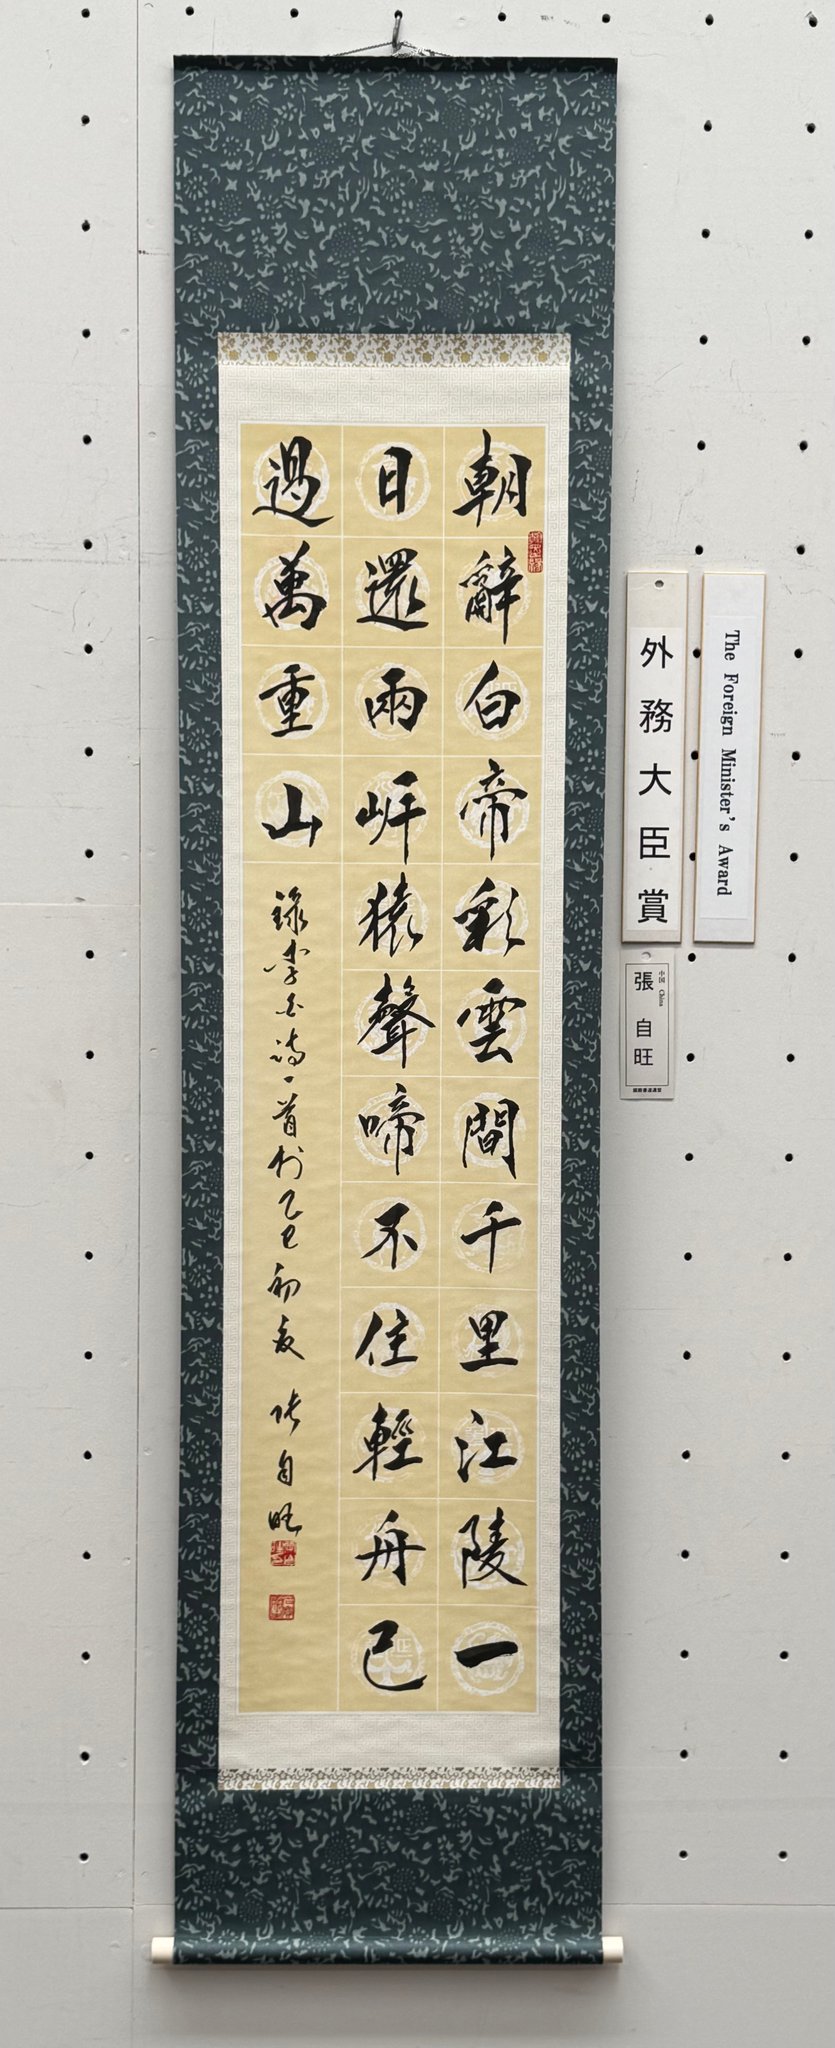 朝辭白帝彩雲間千里江陵一
日還兩岍猿聲啼不住輕舟已
過萬重山
錄李白詩一首於乙巳初夏 張自旺
The Foreign Minister's Award
外務大臣賞
中国 China
張自旺